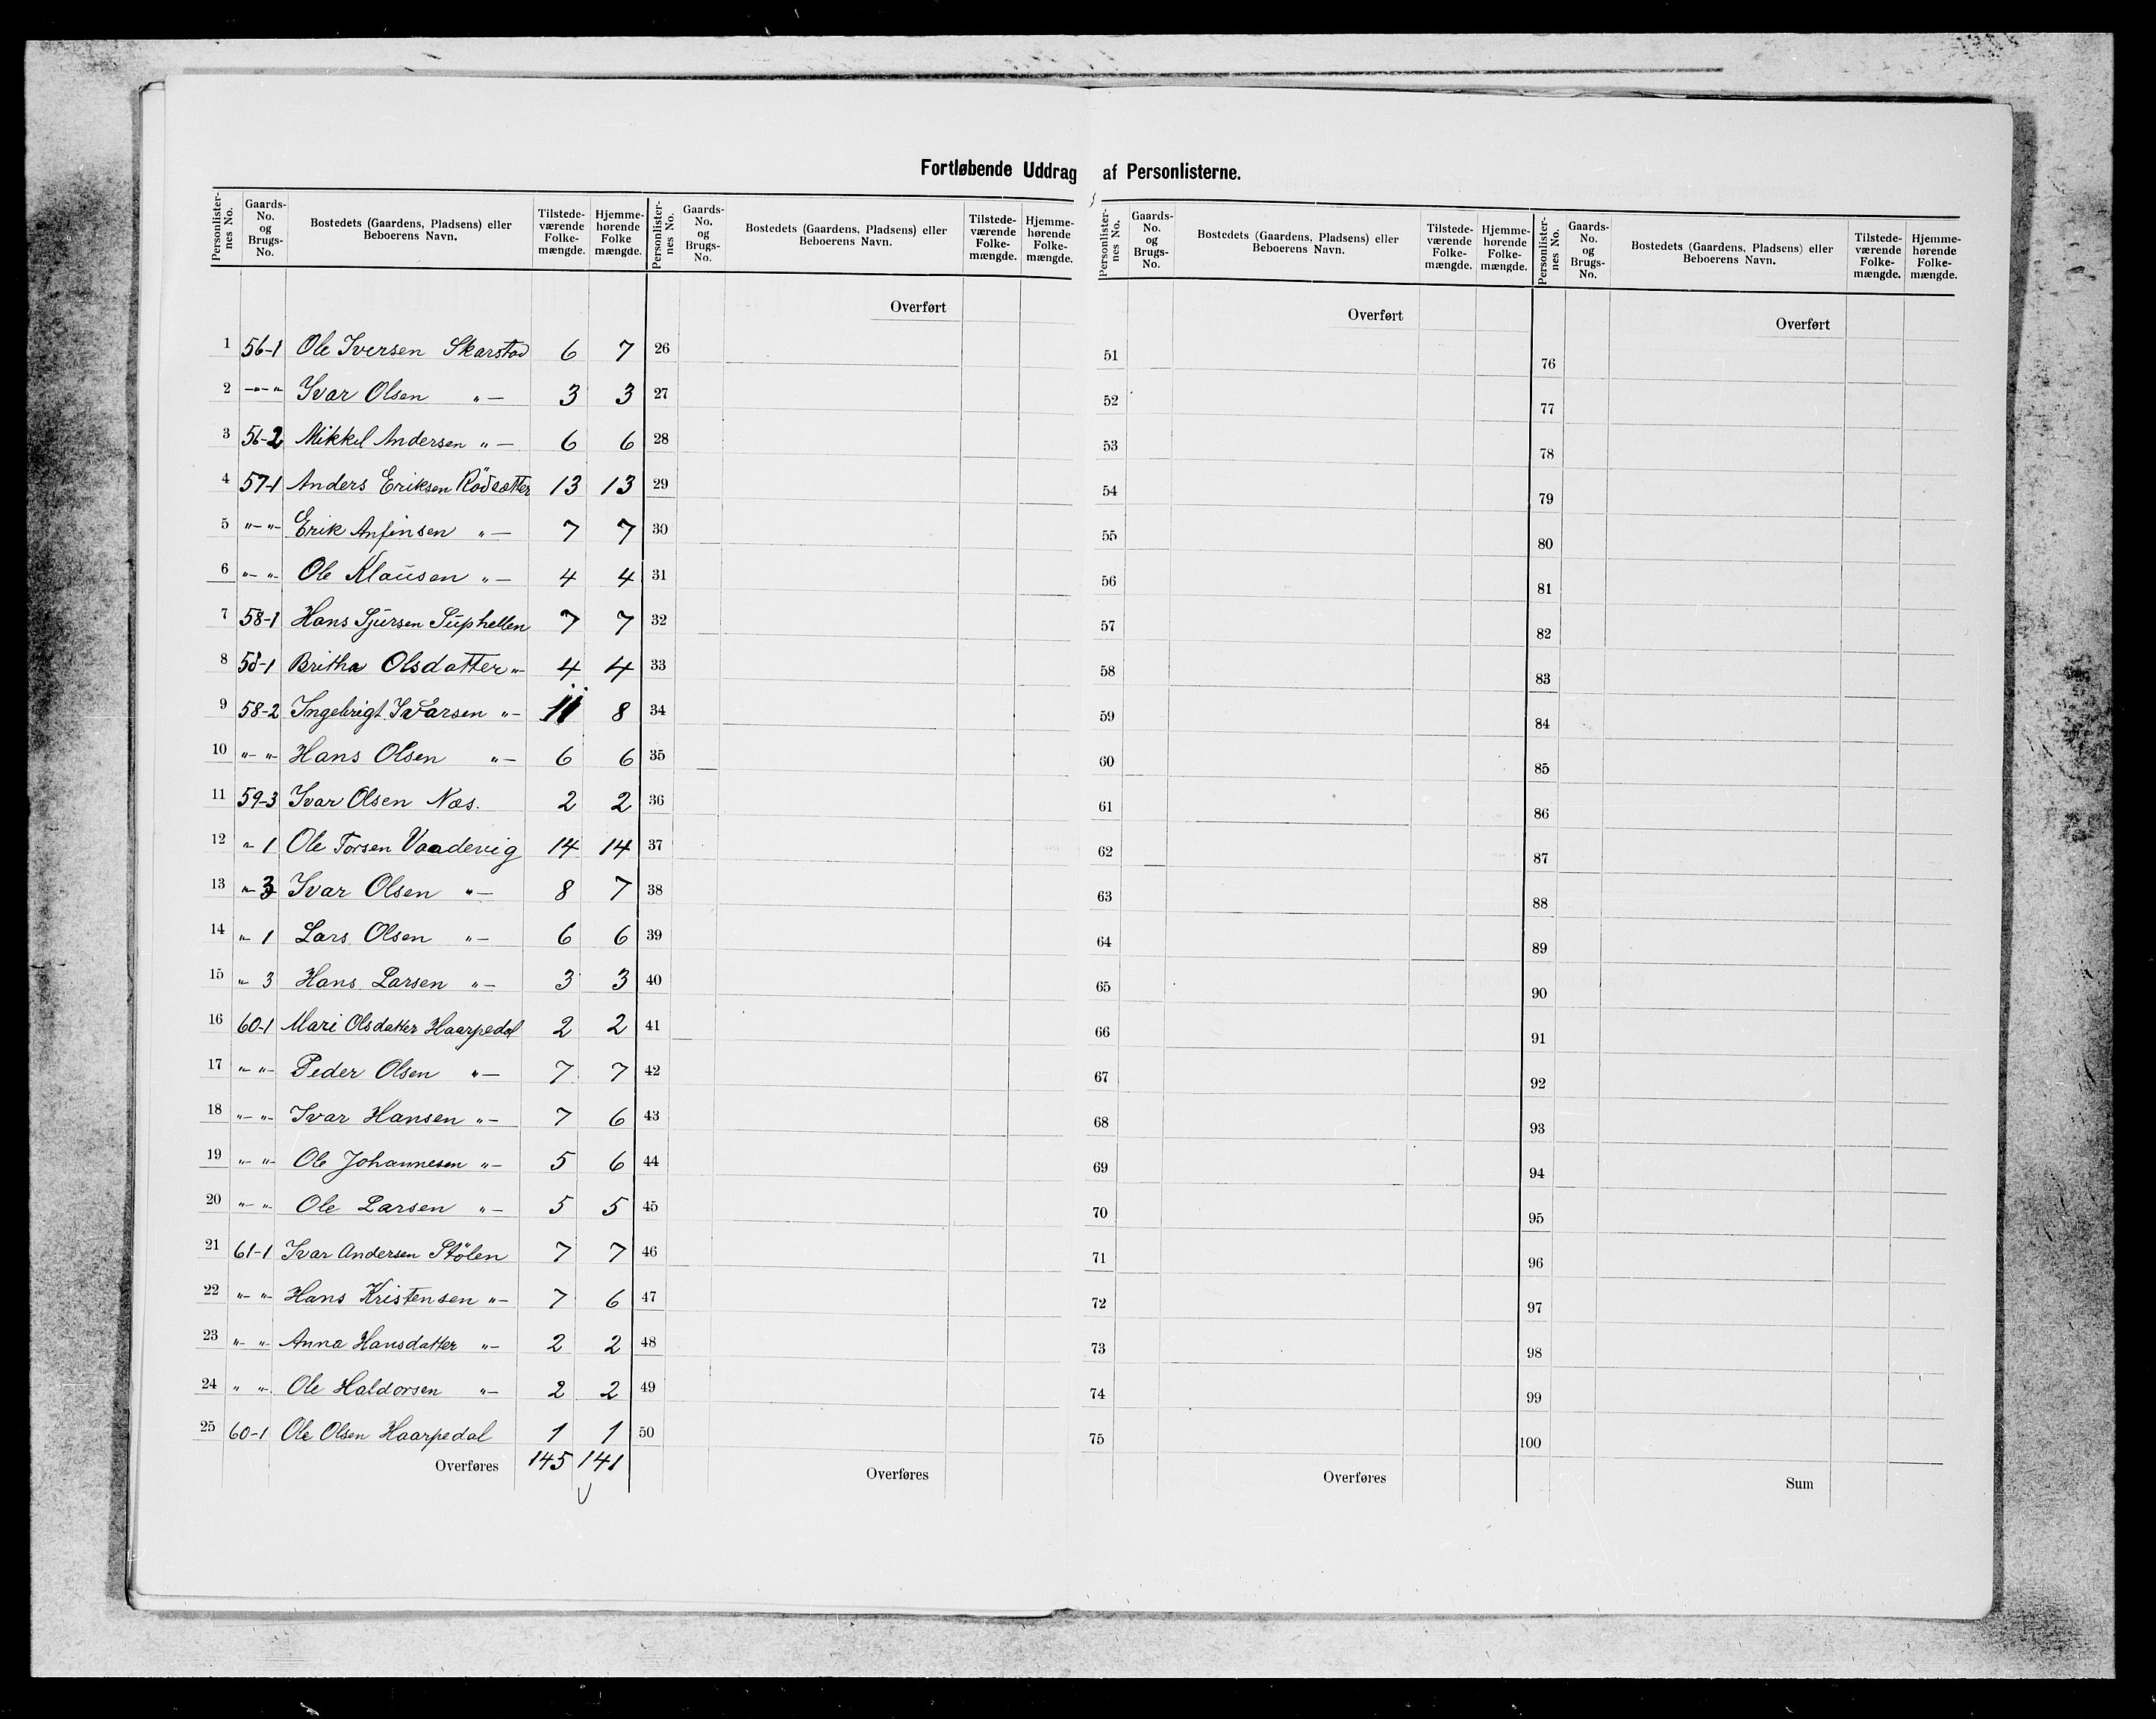 Fortløbende Uddrag af Personlisterne.
Personlisternes No. Gaards-No. og Brugs-No. Bostedets (Gaardens, Pladsens) eller Beboerens Navn. Tilstedeværende Folkemængde. Hjemmehørende Folke mængde.
Personlisternes No. Gaards-No. og Brugs-No. Bostedets (Gaardens, Pladsens) eller Beboerens Navn. Tilstede-værende Folke-mængde. Hjemme-hørende Folke-mængde.
Personlister-nes No. Gaards-No. og Brugs-No. Bostedets (Gaardens, Pladsens) eller Beboerens Navn. Tilstede-værende Folke-mængde. Hjemme-hørende Folke-mængde.
Personlister-nes No. Gaards-No. og Brugs-No. Bostedets (Gaardens, Pladsens) eller Beboerens Navn. Tilstede-værende Folke-mængde. Hjemme-hørende Folke-mængde.
Overført Overført Overført
1 56-1 Ole Iversen Skarstad 6 7 26 51 76
2 -"- "- Ivar Olsen "- 3 3 27 52 77
3 56-2 Mikkel Andersen "- 6 6 28 53 78
4 57-1 Anders Eriksen Rödsætter 13 13 29 54 79
5 "- "- Erik Anfinsen "- 7 7 30 55 80
6 "- "- Ole Klausen "- 4 4 31 56 81
7 58-1 Hans Sjursen Suphellen 7 7 32 57 82
8 58-1 Britha Olsdatter "- 4 4 33 58 83
9 58-2 Ingebrigt Ivarsen "- 11 8 34 59 84
10 "- "- Hans Olsen "- 6 6 35 60 85
11 59-3 Ivar Olsen Næs. 2 2 36 61 86
12 "- 1 Ole Torsen Vaadevig 14 14 37 62 87
13 "- 3 Ivar Olsen "- 8 7 38 63 88
14 "- 1 Lars Olsen "- 6 6 39 64 89
15 "- 3 Hans Larsen "- 3 3 40 65 90
16 60-1 Mari Olsdatter Haarpedal 2 2 41 66 91
17 "- "- Peder Olsen "- 7 7 42 67 92
18 "- "- Ivar Hansen "- 7 6 43 68 93
19 "- "- Ole Johannesen "- 5 6 44 69 94
20 "- "- Ole Larsen "- 5 5 45 70 95
21 61-1 Ivar Andersen Stölen 7 7 46 71 96
22 "- "- Hans Kristensen "- 7 6 47 72 97
23 "- "- Anna Hansdatter "- 2 2 48 73 98
24 " "- Ole Haldorsen "- 2 2 49 74 99
25 60-1 Ole Olsen Haarpedal 1 1 50 75 100
Overføres 145 141 Overføres Overføres Sum